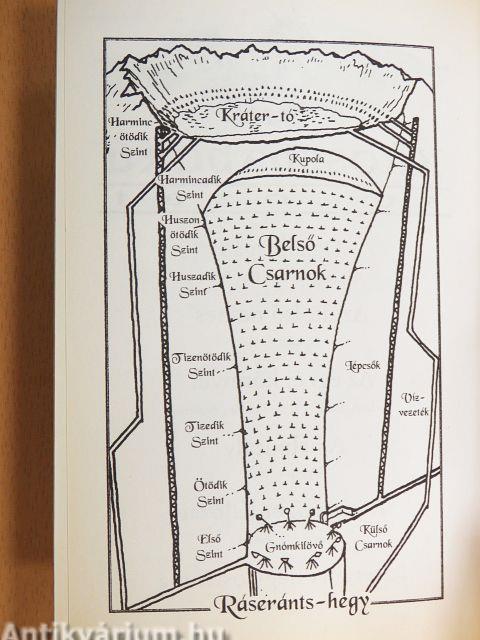 Kráter-tó
Harminc-
ötödik
Szint
Kupola
Harmincadik
Szint
Huszon-
ötödik
Szint
Belső
Csarnok
Huszadik
Szint
Tizenötödik
Szint
Lépcsők
Víz-
vezeték
Tizedik
Szint
Ötödik
Szint
Első
Szint
Gnómkilövő
Külső
Csarnok
Ráseránts-hegy
Antikvárium.hu